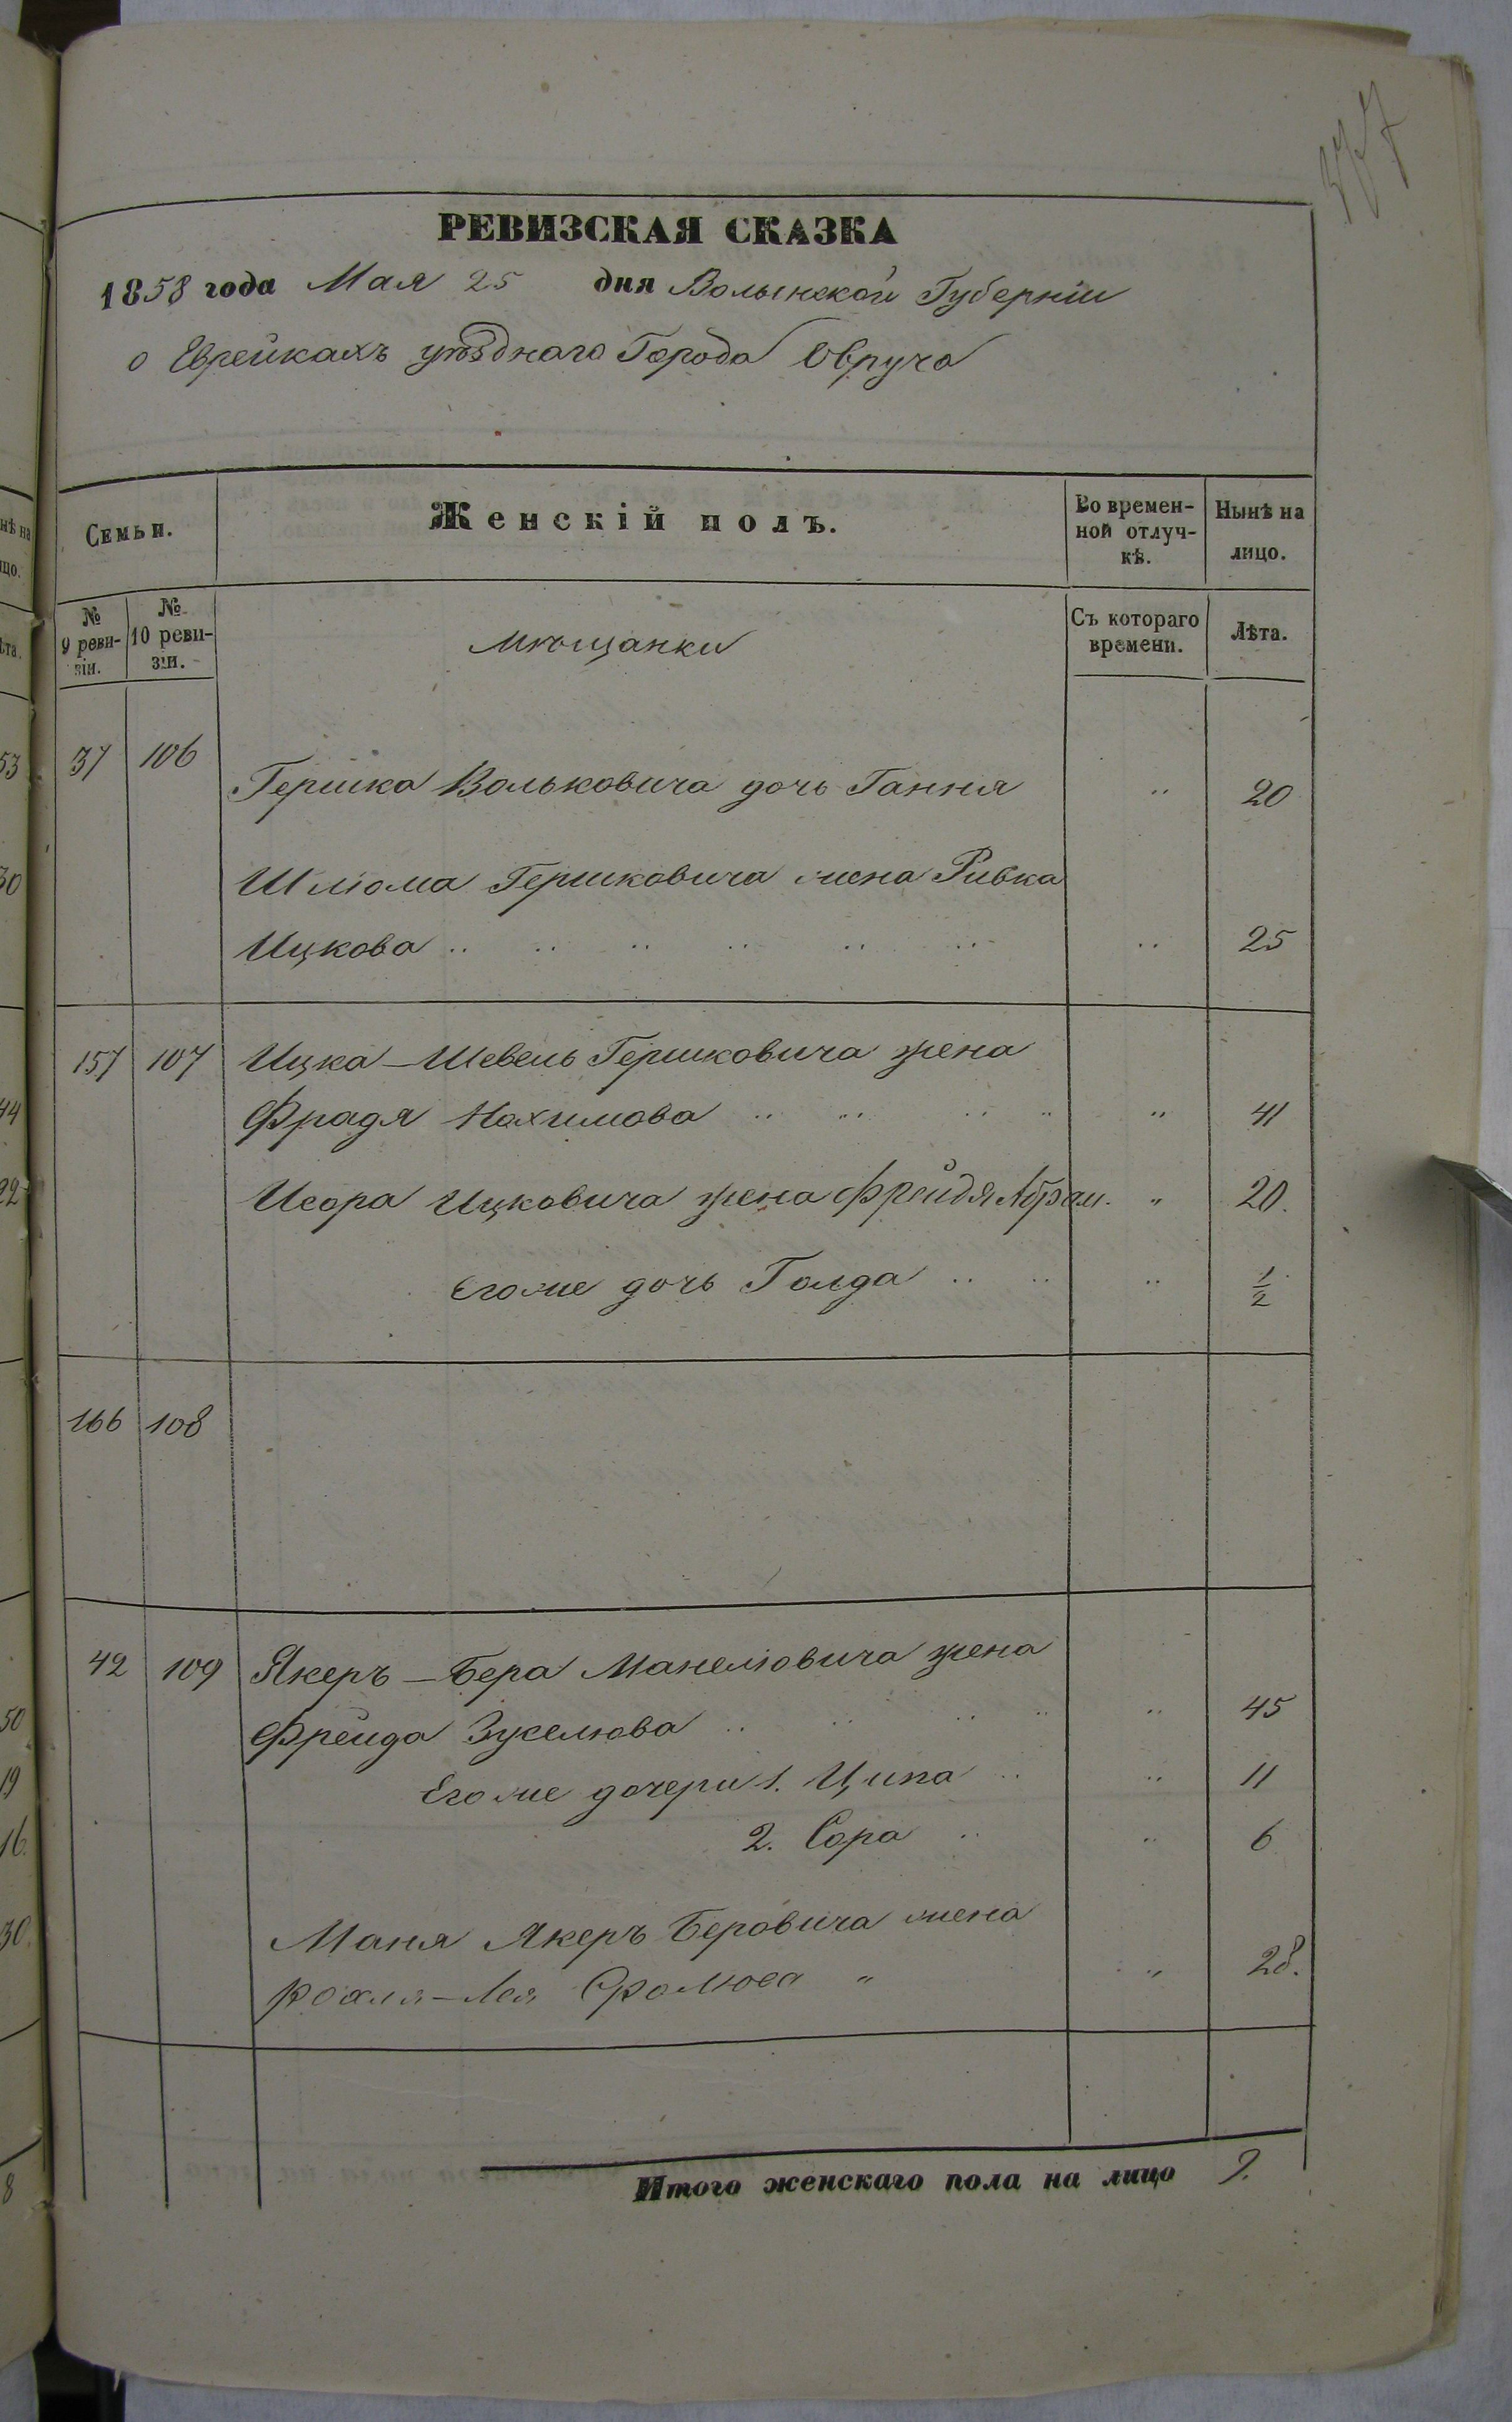 РЕВИЗСКАЯ СКАЗКА
1858 года Мая 25 дня Волынской Губерніи
о Еврейкахъ уѣзднаго Города Овруча
Семьи.
Женскій полъ.
Во времен-
ной отлуч-
кѣ.
Нынѣ на
лицо.
№
9 реви-
зіи.
№
10 реви-
зіи.
Мѣщанки
Съ котораго
времени.
Лѣта.
37 106
Гершка Вольковича дочь Гання " 20
Шлюома Гершковича жена Ривка
Ицкова " 25
157 107 Ицка-Шевель Гершковича жена
Фрадя Нахимова " 41
Исора Ицковича жена Фрейдя Абрам. " 20.
Егоже дочь Голда " 1/2
166 108
42 109 Якеръ-Бера Манелювича жена
Фрейда Зукелюва " 45
Егоже дочери 1. Ципа " 11
2. Сора " 6
Маня Якеръ Беровича жена
Рохля-Лея " 28.
Итого женскаго пола на лицо 9.